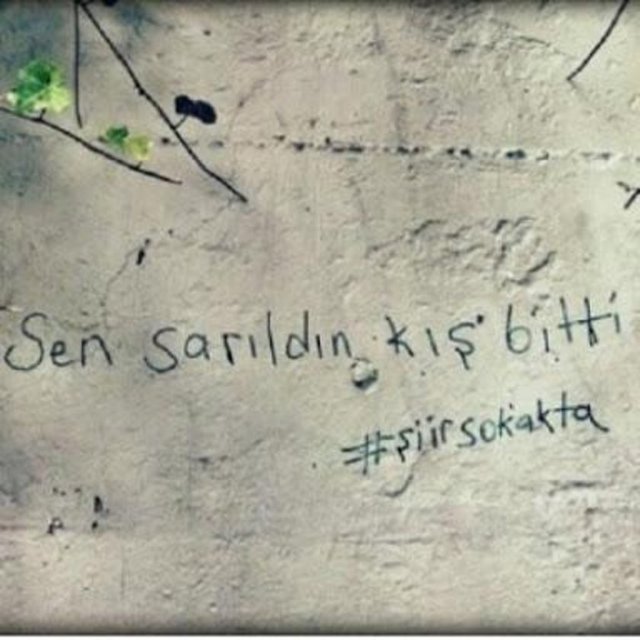 Sen sarıldın kış bitti
#şiirsokakta